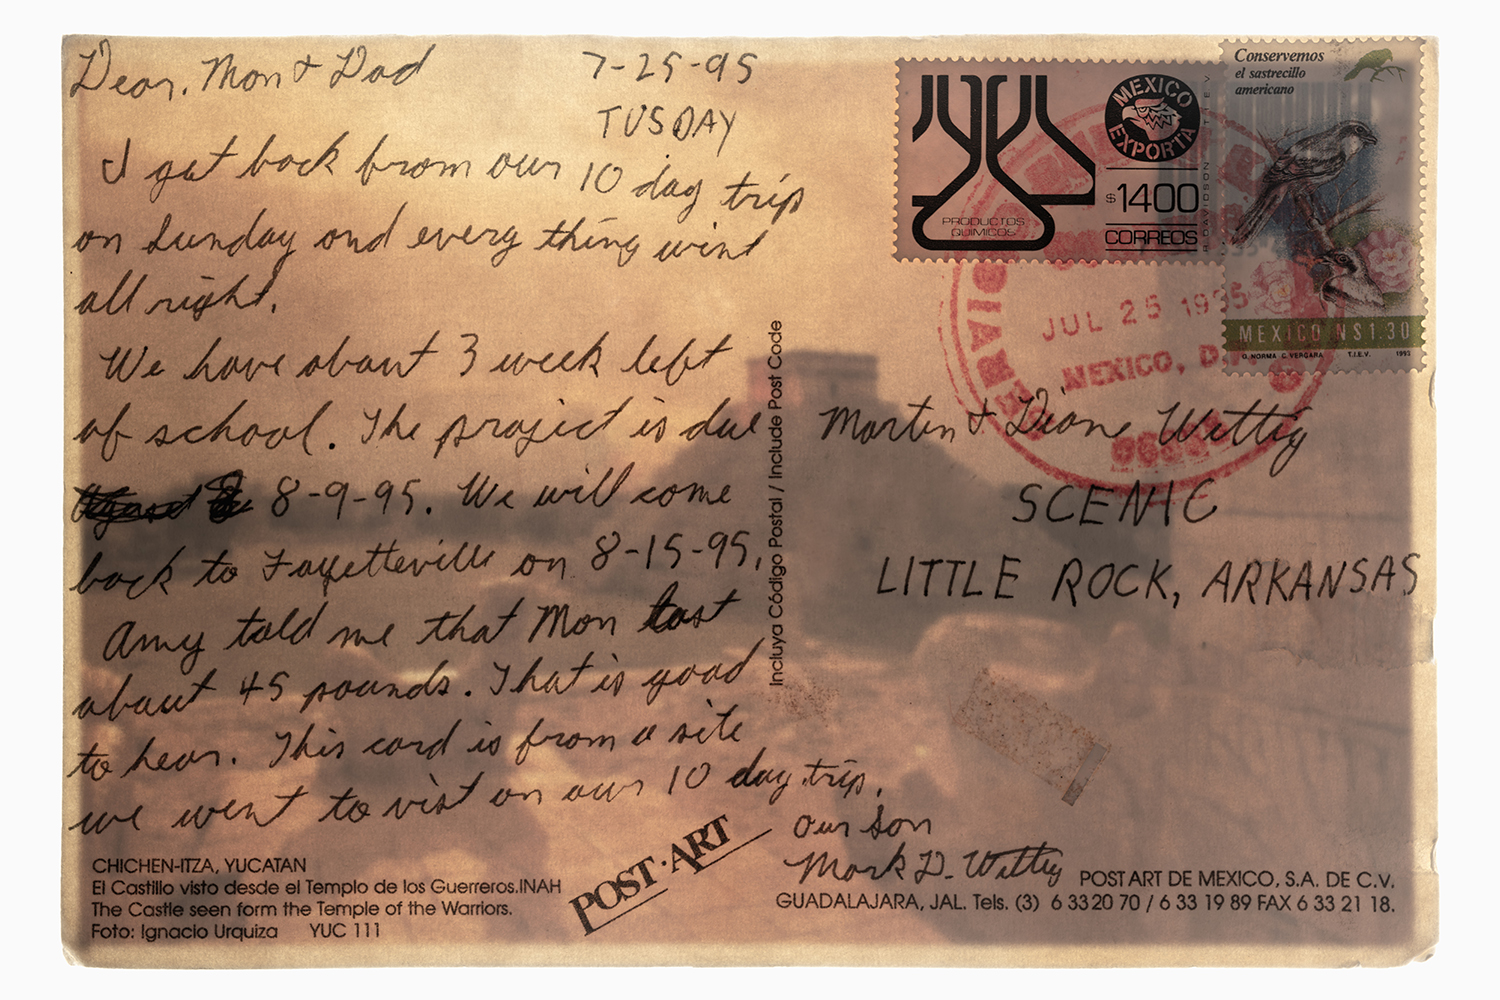 Dear, Mon & Dad
7-25-95
TUSDAY
I get back from our 10 day trip
on Sunday and every thing wint
all right.
We have about 3 week left
of school. The project is due
8-9-95. We will come
back to Fayetteville on 8-15-95.
Amy told me that Mon lost
about 45 pounds. That is good
to hear. This card is from a site
we went to vist on our 10 day trip.
our Son
Mark D. Wittig
CHICHEN-ITZA, YUCATAN
El Castillo visto desde el Templo de los Guerreros.INAH
The Castle seen form the Temple of the Warriors.
Foto: Ignacio Urquiza YUC 111
POST·ART
Incluya Código Postal / Include Post Code
MEXICO EXPORTA
$1400
CORREOS
PRODUCTOS
QUIMICOS
H. DAVIDSON T.I.E.V.
Conservemos
el sastrecillo
americano
MEXICO N$1.30
O. NORMA C. VERGARA T.I.E.V. 1993
JUL 25 1995
MEXICO, D.
Martin & Diane Wittig
SCENIC
LITTLE ROCK, ARKANSAS
POSTART DE MEXICO, S.A. DE C.V.
GUADALAJARA, JAL. Tels. (3) 6 33 20 70 / 6 33 19 89 FAX 6 33 21 18.